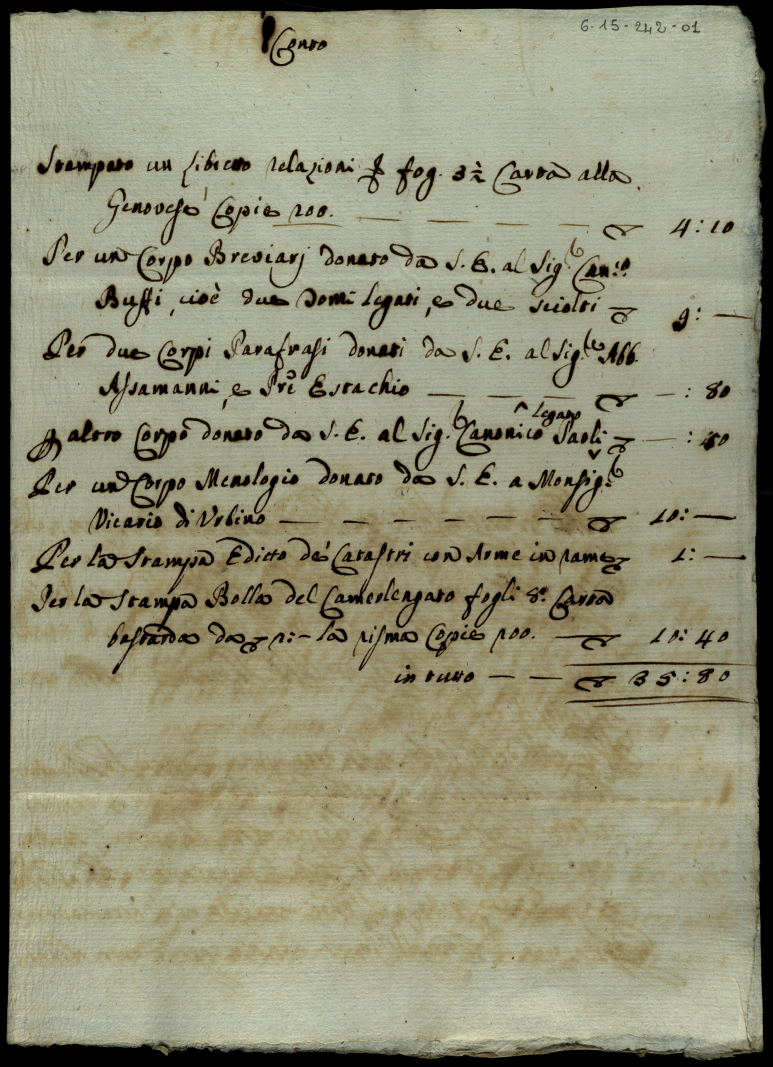 6-15-242-01
Conto
Stampato un libretto relazioni per fog. 3½ Carta alla
Genovese Copie 200. — — — — — ▽ 4:10
Per un Corpo Breviarj donato da S. E. al Sig.r Can.co
Buffi, cioè due Tomi legati, e due sciolti ▽ 9: —
Per due Corpi Parafrasi donati da S. E. al Sig.re Abb.
Assamanni, e Pre Estachio — — — ▽ —: 80
legato
per altro Corpo donato da S. E. al Sig.r Canonico Paoli ▽ —: 50
Per un Corpo Menologio donato da S. E. a Monsig.r
Vicario di Urbino — — — — — — ▽ 10: —
Per la Stampa Editto de' Catastri con Arme in rame ▽ 1: —
Per la Stampa Bolla del Camerlengato fogli 8.º Carta
bastarda da ▽ 2: — la risma Copie 200. — ▽ 10:40
in tutto — — ▽ 35:80